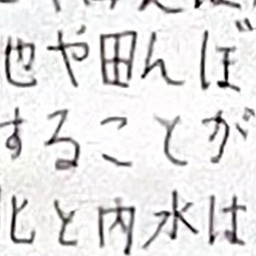 池や田んぼ
することが
化と内水は